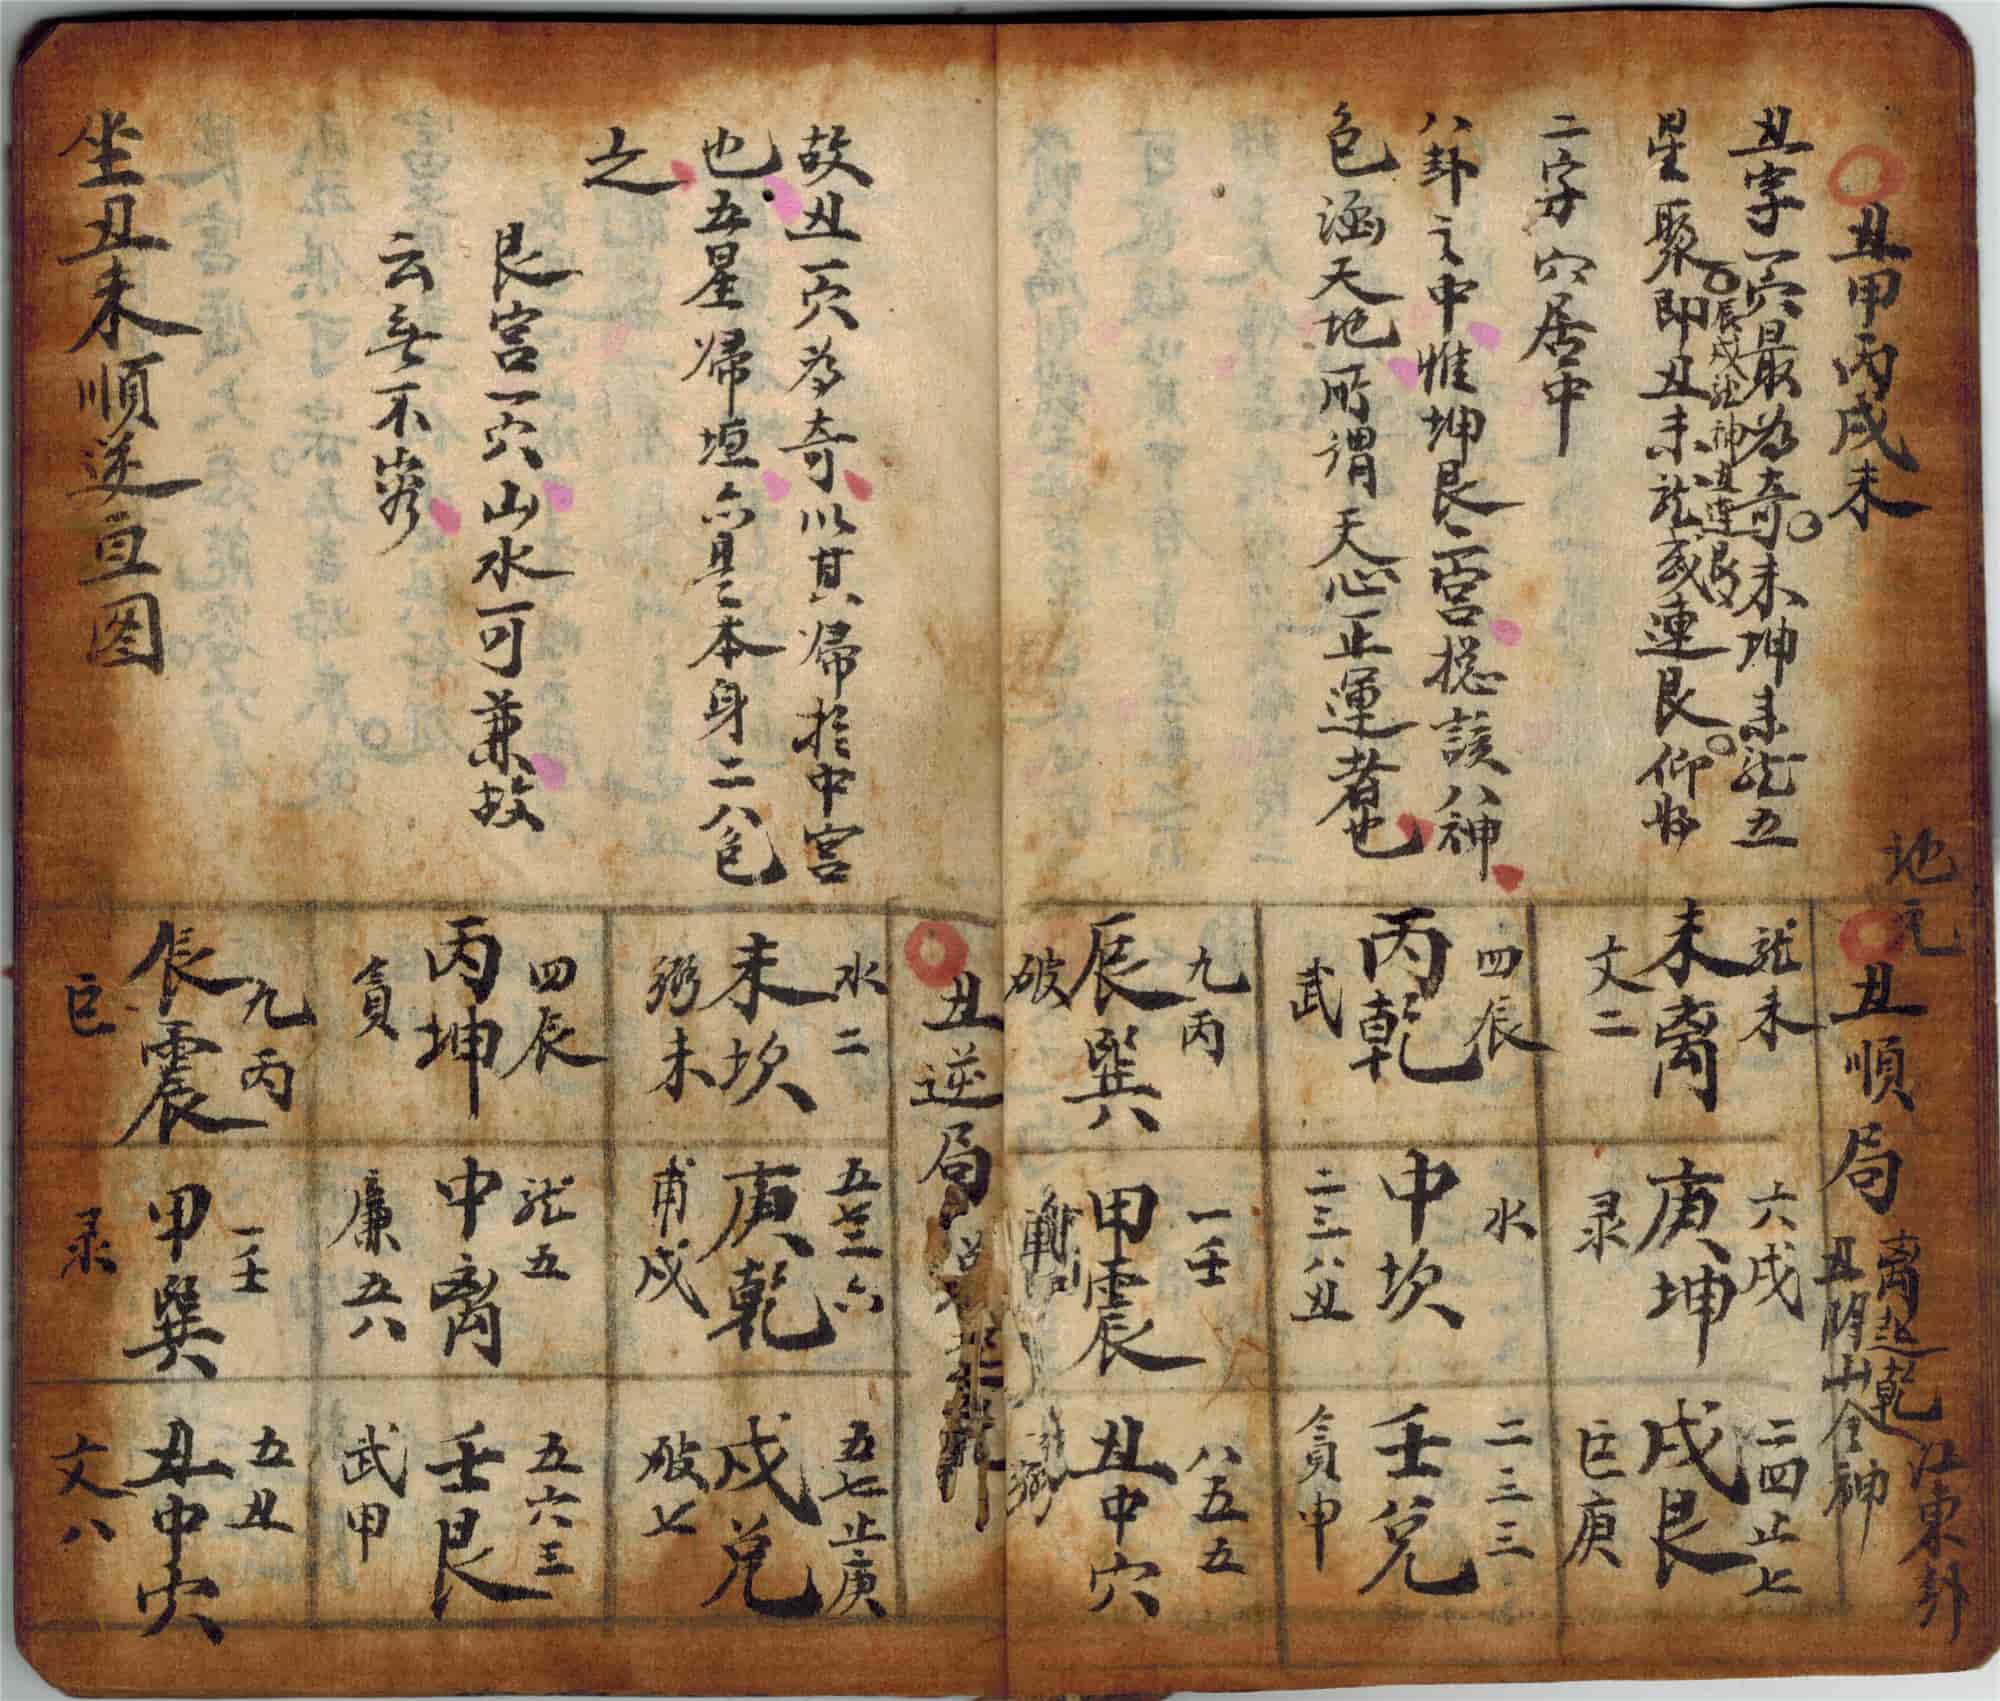 丑甲丙戌未
丑字一穴最為奇未坤未龍五
辰戌龍神道連艮
星聚即丑未龍或連艮仰
二字穴居中
八卦之中惟坤艮二宮揔該八神
包涵天地所謂天心正運者也
故丑一穴為奇以其歸於中宮
也五星歸垣六是本身二八包
之
艮宮一穴山水可兼故
云無不
坐丑未順逆亘图
地元
丑順局
離起乾
丑陰山全神
江東卦
龍未
未離
文二
四辰
丙乾
武
九丙
辰巽
破
六戌
庚坤
录
水
中坎
二三八丑
一壬
甲震
二四止七
戌艮
巨庚
二三三
壬兌
貪甲
八五五
丑中穴
弼
丑逆局
水二
未坎
弼未
四辰
丙坤
貪
九丙
辰震
巨
庚乾
甫戌
龍五
中离
廉五八
一壬
甲巽
录
五七止庚
戌兌
破七
五六三
壬艮
武甲
五丑
丑中穴
文八